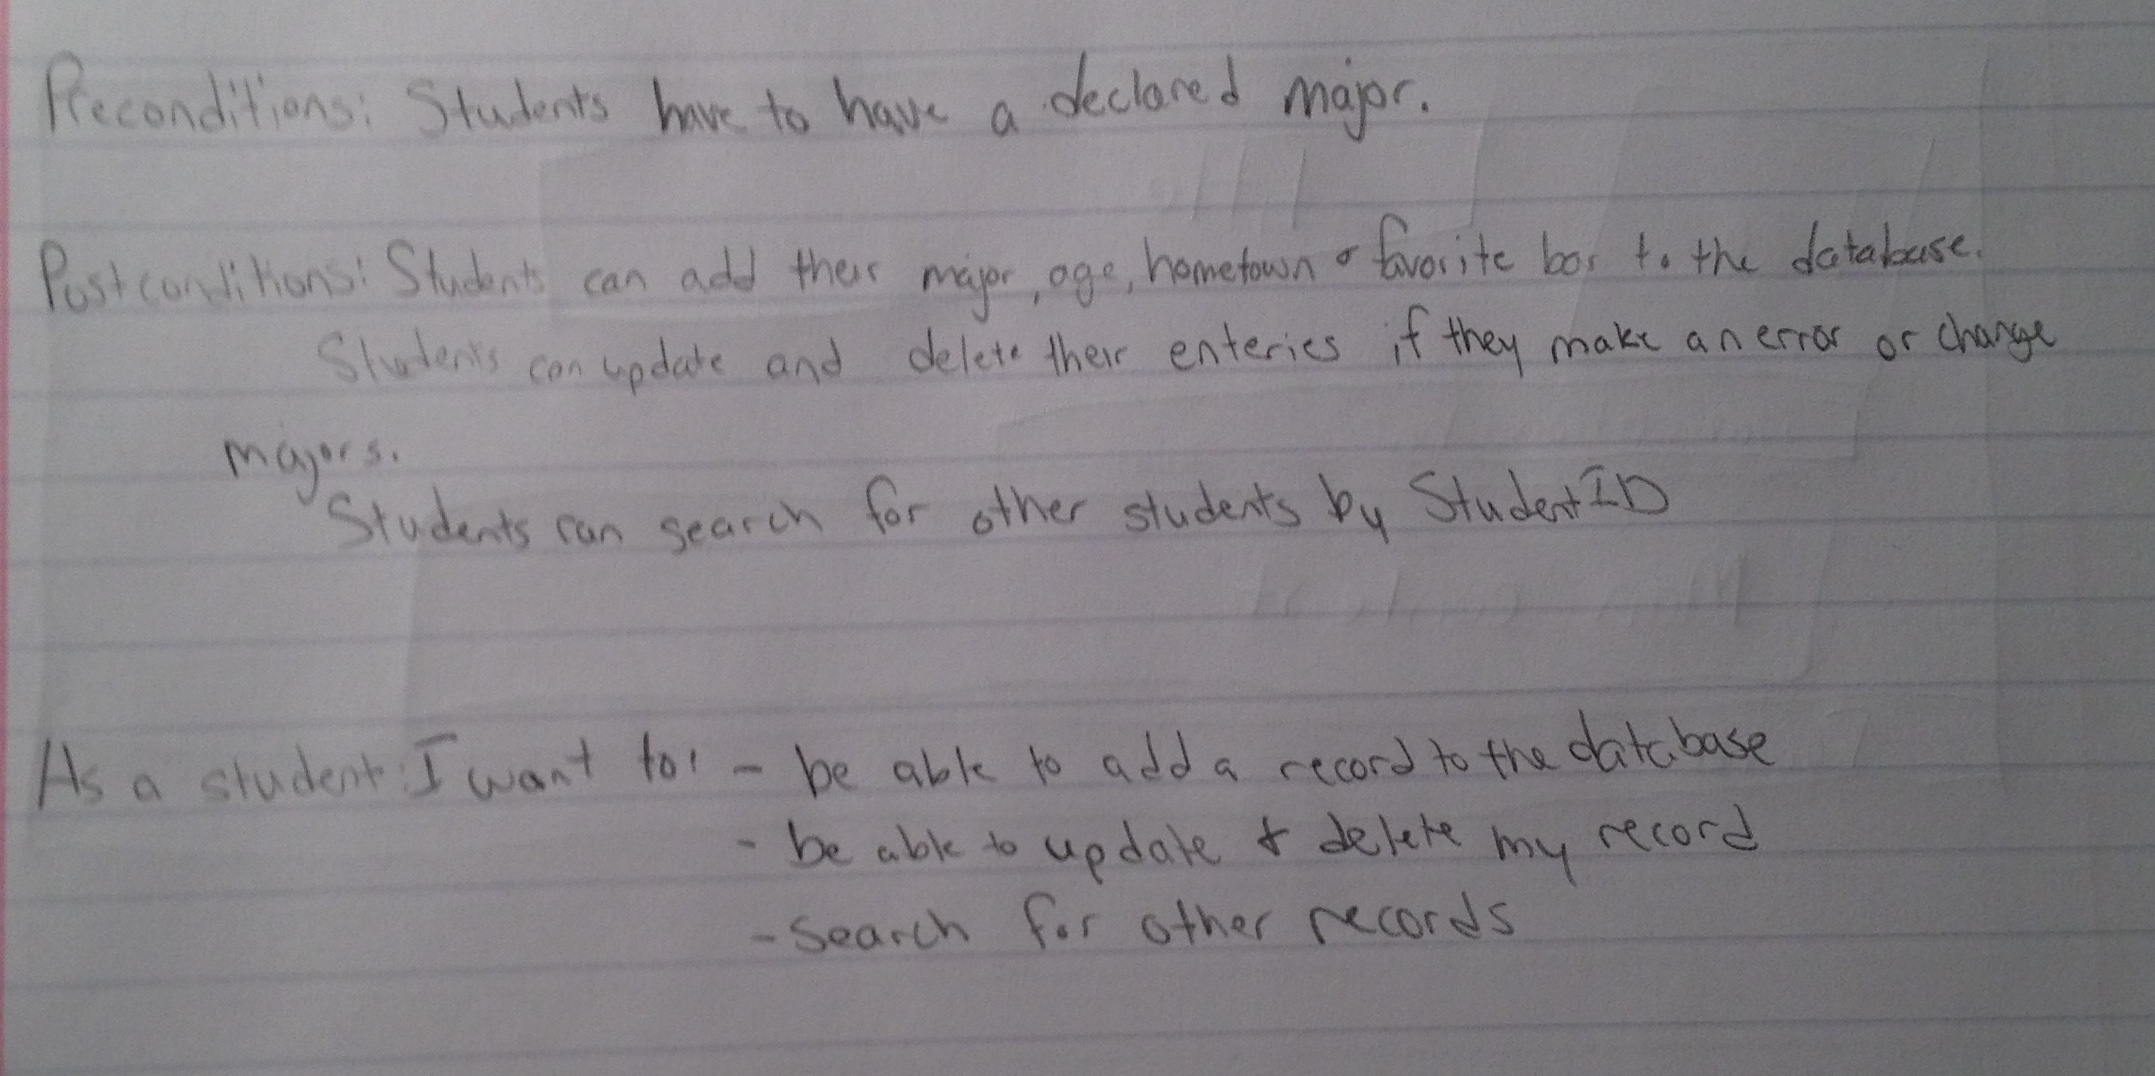 Preconditions: Students have to have a declared major.
Postconditions: Students can add their major, age, hometown & favorite bar to the database.
Students can update and delete their enteries if they make an error or change
majors.
Students can search for other students by StudentID
As a student I want to: - be able to add a record to the database
- be able to update & delete my record
- search for other records